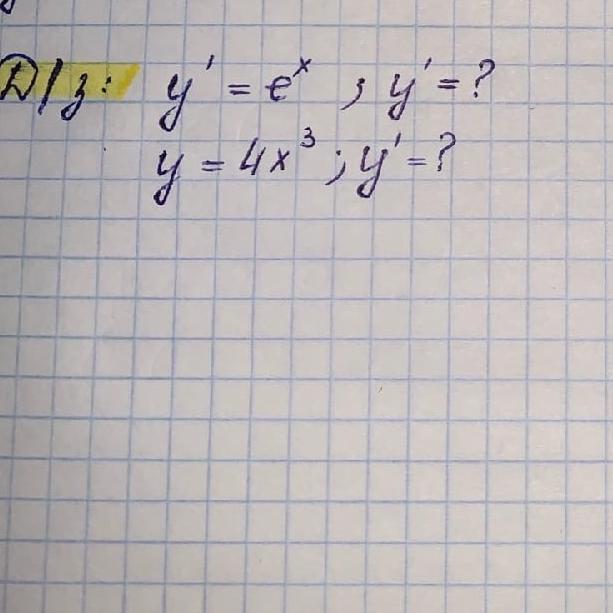 Д/з: y' = eˣ ; y' = ?
y = 4x³ ; y' = ?